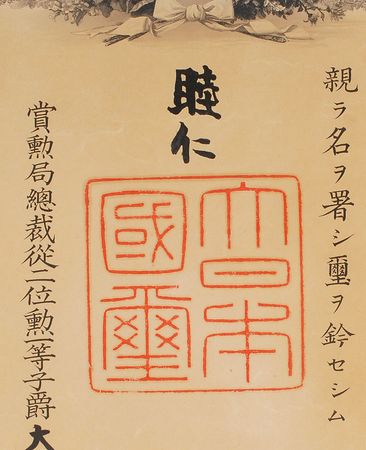 親ラ名ヲ署シ璽ヲ鈐セシム
睦仁
大日本
國璽
賞勲局總裁從二位勲一等子爵大